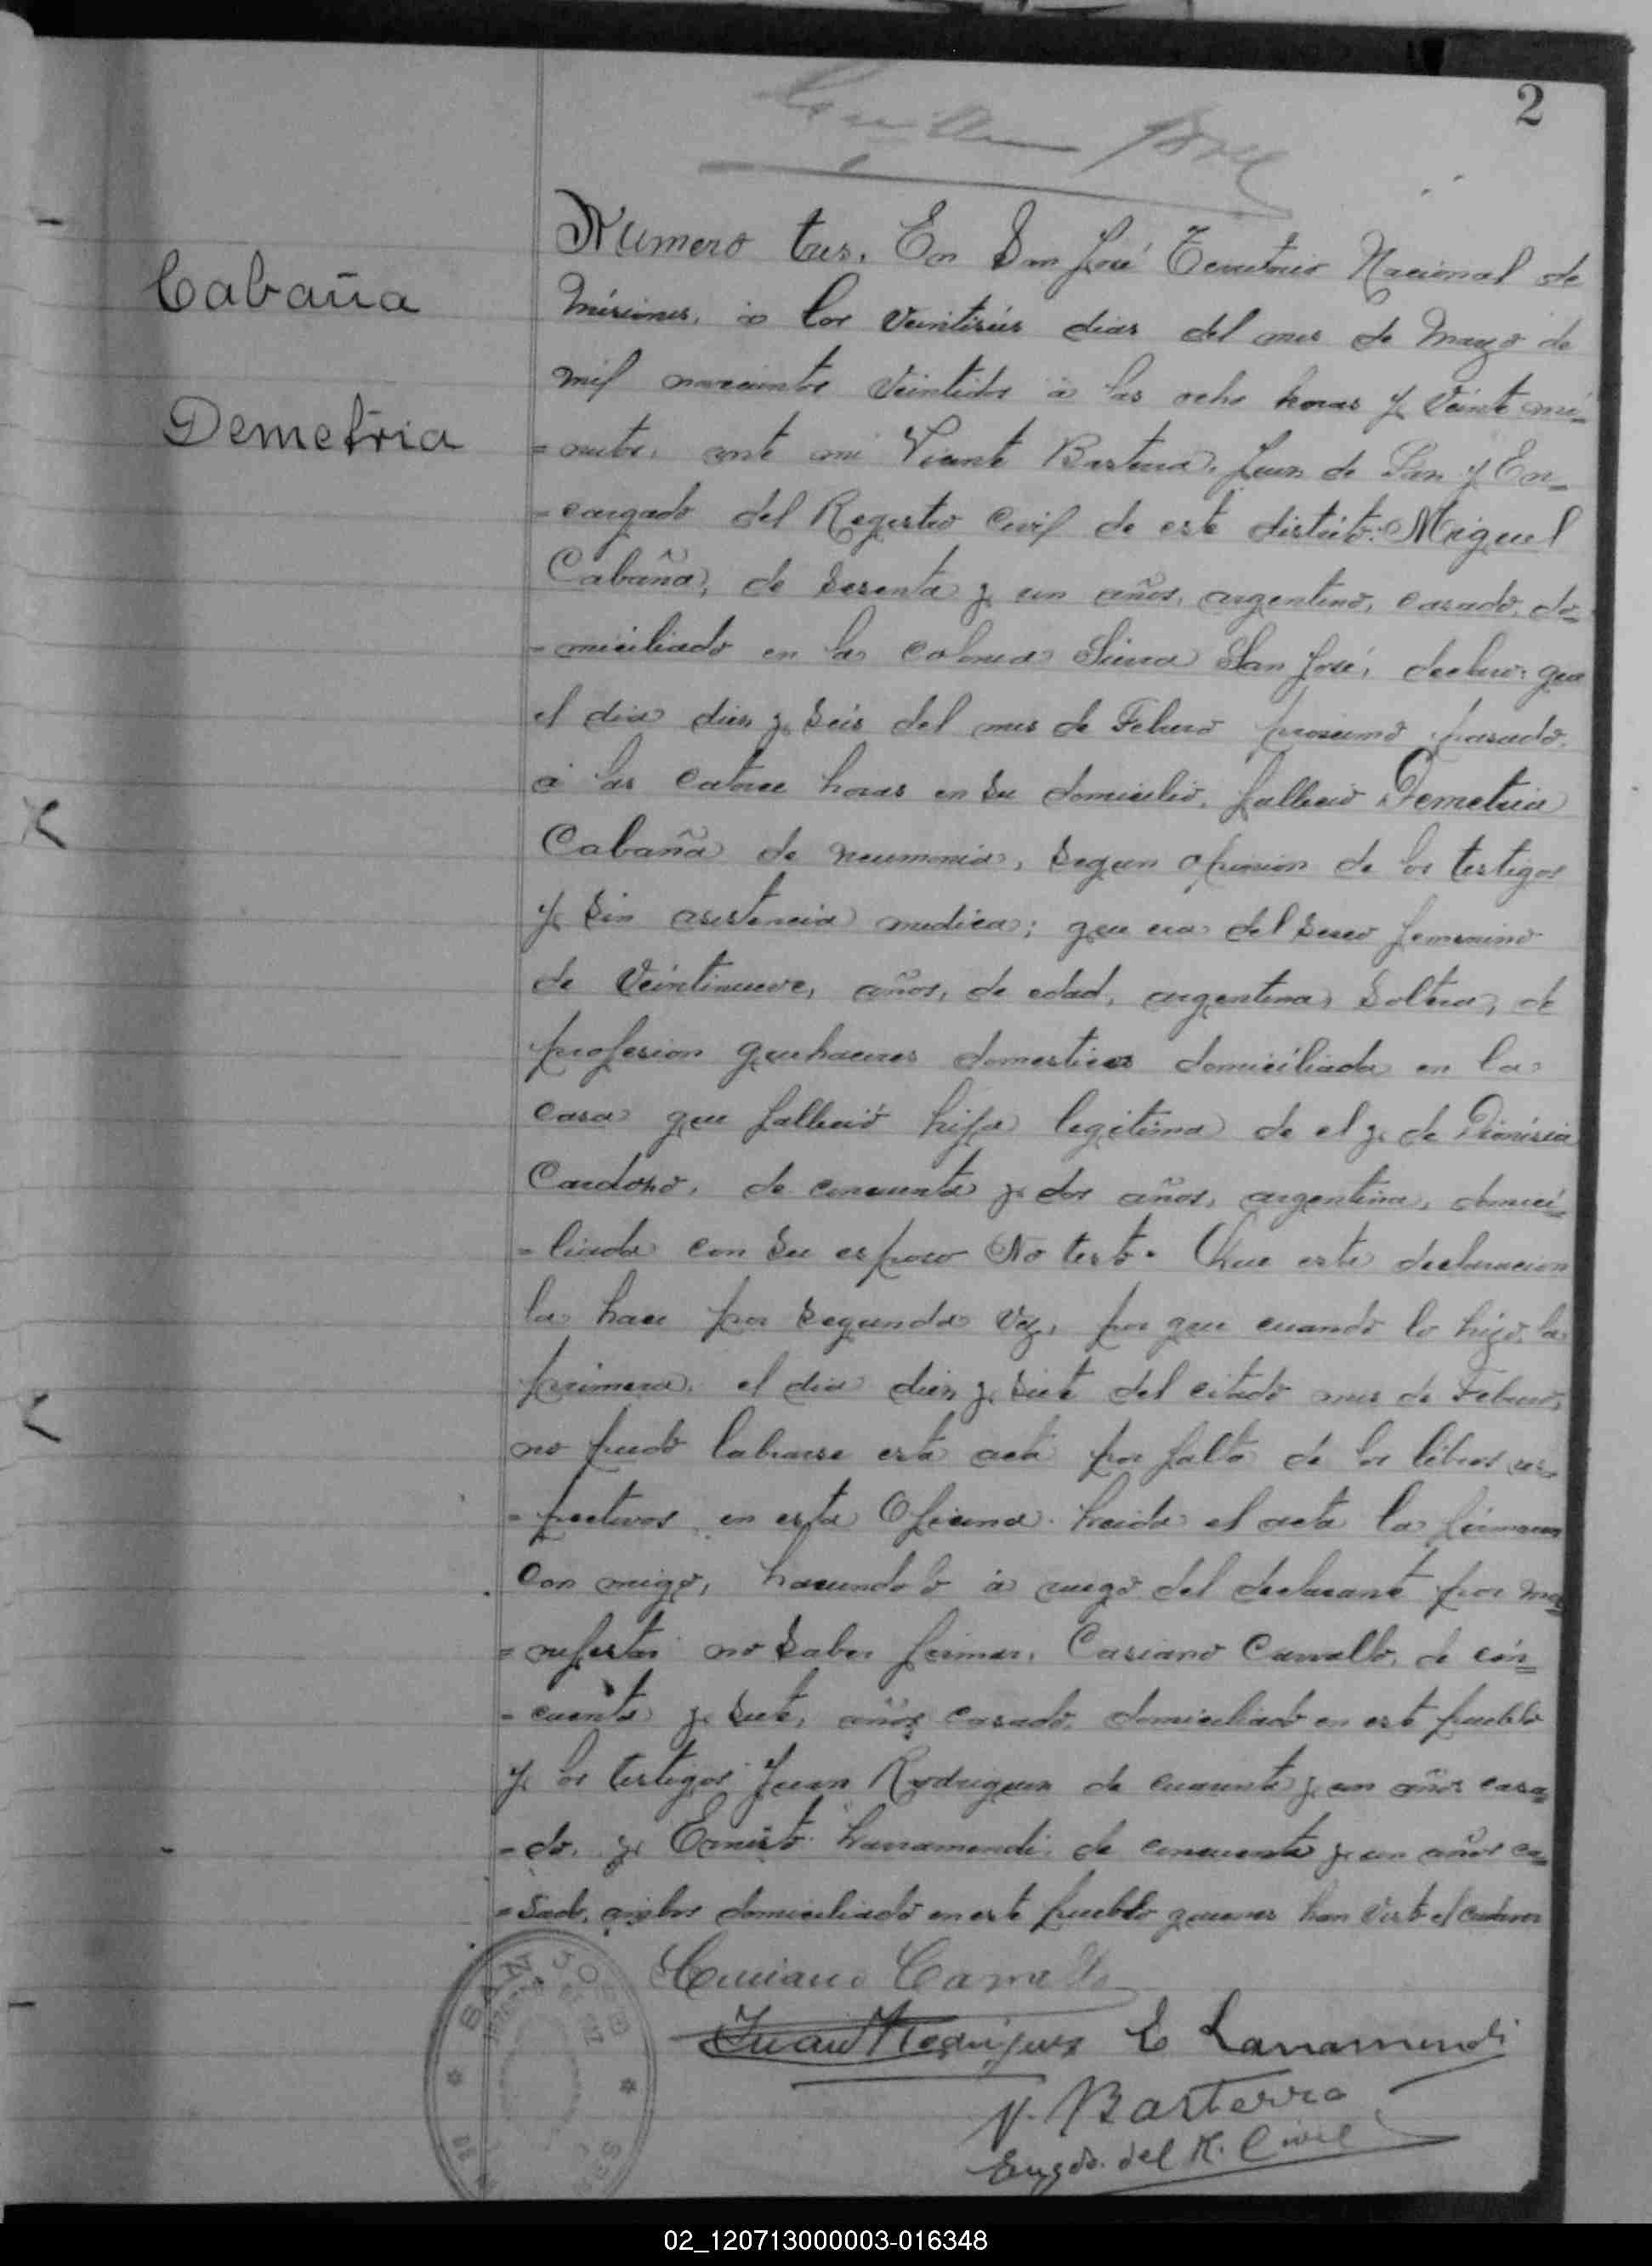 2
Cabaña
Demetria
Numero tres. En San José Territorio Nacional de
Misiones, á los veintiséis dias del mes de Mayo de
mil novecientos veintidos á las ocho horas y veinte mi-
=nutos, ante mi Vicente Basterra, Juez de Paz y En-
=cargado del Registro Civil de este distrito: Miguel
Cabaña, de sesenta y un años, argentino, casado, do-
=miciliado en la colonia Sierra San José, declaro: que
el dia diez y seis del mes de Febrero proximo pasado,
á las catorce horas en su domicilio, falleció Demetria
Cabaña de neumonia, segun opinion de los testigos
y sin asistencia medica; que era del sexo femenino
de veintinueve, años, de edad, argentina, soltera, de
profesion quehaceres domesticos domiciliada en la
casa que falleció hija legitima de el y de Dionisia
Cardozo, de cincuenta y dos años, argentina, domici-
=liada con su esposo No testó. Que esta declaracion
la hace por segunda vez, por que cuando lo hizo la
primera, el dia diez y siete del citado mes de Febrero,
no pudo labrarse esta acta por falta de los libros res-
=pectivos, en esta Oficina. Leida el acta la firmaron
con migo, haciendolo á ruego del declarante por ma-
=nifestar no saber firmar, Casiano Carvallo, de cin-
=cuenta y siete, años casado, domiciliado en este pueblo
y los testigos Juan Rodriguez de cuarenta y un años casa-
=do, y Ernesto Larramendi, de cincuenta y un años ca-
=sado, ambos domiciliado en este pueblo quienes han visto el cadaver
Carvallo
Juan Rodriguez E Larramendi
V. Basterra
Engdo. del R. Civil
SAN JOSE
02_120713000003-016348